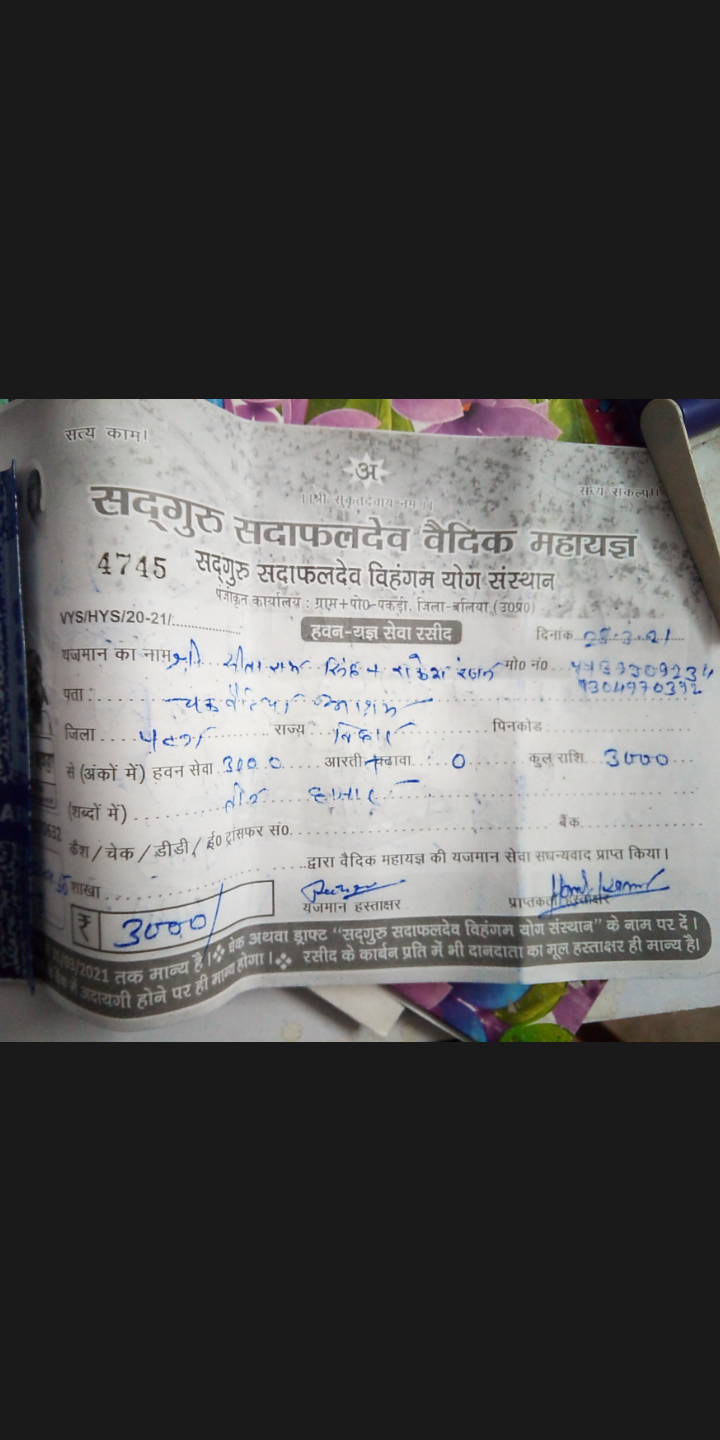 सत्य काम।
अ
।।श्री सुकृतदेवाय नमः।।
सत्य संकल्प।।
सद्गुरु सदाफलदेव वैदिक महायज्ञ
4745 सद्गुरु सदाफलदेव विहंगम योग संस्थान
पंजीकृत कार्यालय : ग्राम+पो०-पकड़ी, जिला-बलिया (उ०प्र०)
VYS/HYS/20-21/
हवन-यज्ञ सेवा रसीद
दिनांक
यजमान का नाम श्री सीता राम सिंह + राकेश रंजन मो० नं०
9304970392
पता : आश्रम
जिला पटना राज्य बिहार पिनकोड
से (अंकों में) हवन सेवा 3000 आरती+चढावा : 0 कुल राशि 3000
(शब्दों में) तीन हजार
कैश / चेक / डीडी / ई० ट्रांसफर सं० बैंक
द्वारा वैदिक महायज्ञ की यजमान सेवा सधन्यवाद प्राप्त किया।
शाखा
यजमान हस्ताक्षर प्राप्तकर्ता हस्ताक्षर
₹ 3000/
/03/2021 तक मान्य है। चेक अथवा ड्राफ्ट "सद्गुरु सदाफलदेव विहंगम योग संस्थान" के नाम पर दें।
में अदायगी होने पर ही मान्य होगा। रसीद के कार्बन प्रति में भी दानदाता का मूल हस्ताक्षर ही मान्य है।